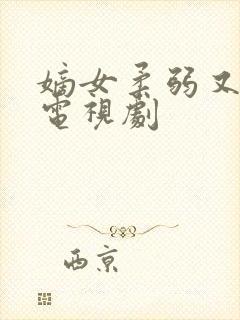 嫡女柔弱又
電視劇
西京